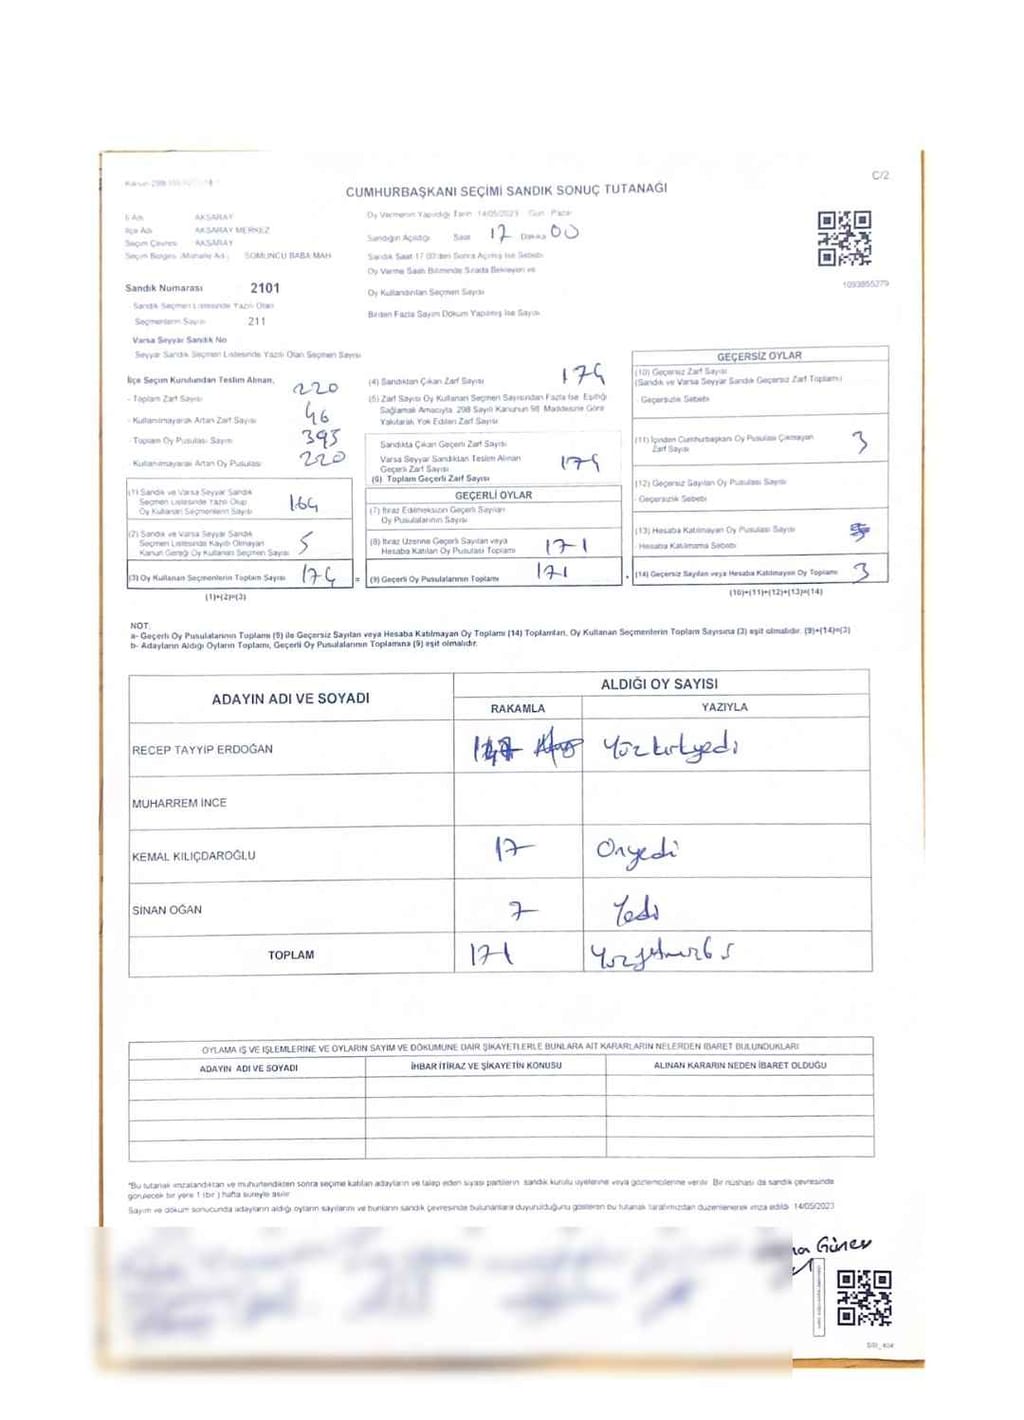 C/2
CUMHURBAŞKANI SEÇİMİ SANDIK SONUÇ TUTANAĞI
İl Adı AKSARAY
İlçe Adı AKSARAY MERKEZ
Seçim Çevresi AKSARAY
Seçim Bölgesi (Mahalle Adı) SOMUNCU BABA MAH
Sandık Numarası 2101
Sandık Seçmen Listesinde Yazılı Olan
Seçmenlerin Sayısı 211
Varsa Seyyar Sandık No
Seyyar Sandık Seçmen Listesinde Yazılı Olan Seçmen Sayısı
Oy Vermenin Yapıldığı Tarih 14/05/2023 Gün Pazar
Sandığın Açıldığı Saat 17 Dakika 00
Sandık Saat 17.00'den Sonra Açılmış İse Sebebi
Oy Verme Saati Bitiminde Sırada Bekleyen ve
Oy Kullandırılan Seçmen Sayısı
Birden Fazla Sayım Döküm Yapılmış İse Sayısı
1093855279
İlçe Seçim Kurulundan Teslim Alınan,
- Toplam Zarf Sayısı 220
- Kullanılmayarak Artan Zarf Sayısı 46
- Toplam Oy Pusulası Sayısı 393
- Kullanılmayarak Artan Oy Pusulası 220
(1) Sandık ve Varsa Seyyar Sandık
Seçmen Listesinde Yazılı Olup
Oy Kullanan Seçmenlerin Sayısı
(2) Sandık ve Varsa Seyyar Sandık
Seçmen Listesinde Kayıtlı Olmayan
Kanun Gereği Oy Kullanan Seçmen Sayısı 5
(3) Oy Kullanan Seçmenlerin Toplam Sayısı 174 =
(1)+(2)=(3)
(4) Sandıktan Çıkan Zarf Sayısı 174
(5) Zarf Sayısı Oy Kullanan Seçmen Sayısından Fazla İse Eşitliği
Sağlamak Amacıyla 298 Sayılı Kanunun 98. Maddesine Göre
Yakılarak Yok Edilen Zarf Sayısı
Sandıkta Çıkan Geçerli Zarf Sayısı
Varsa Seyyar Sandıktan Teslim Alınan
Geçerli Zarf Sayısı
(6) Toplam Geçerli Zarf Sayısı 174
GEÇERLİ OYLAR
(7) İtiraz Edilmeksizin Geçerli Sayılan
Oy Pusulalarının Sayısı
(8) İtiraz Üzerine Geçerli Sayılan veya
Hesaba Katılan Oy Pusulası Toplamı 171
(9) Geçerli Oy Pusulalarının Toplamı 171
GEÇERSİZ OYLAR
(10) Geçersiz Zarf Sayısı
(Sandık ve Varsa Seyyar Sandık Geçersiz Zarf Toplamı)
- Geçersizlik Sebebi
(11) İçinden Cumhurbaşkanı Oy Pusulası Çıkmayan
Zarf Sayısı 3
(12) Geçersiz Sayılan Oy Pusulası Sayısı
- Geçersizlik Sebebi
(13) Hesaba Katılmayan Oy Pusulası Sayısı
- Hesaba Katılmama Sebebi
(14) Geçersiz Sayılan veya Hesaba Katılmayan Oy Toplamı 3
(10)+(11)+(12)+(13)=(14)
NOT:
a- Geçerli Oy Pusulalarının Toplamı (9) ile Geçersiz Sayılan veya Hesaba Katılmayan Oy Toplamı (14) Toplamları, Oy Kullanan Seçmenlerin Toplam Sayısına (3) eşit olmalıdır. (9)+(14)=(3)
b- Adayların Aldığı Oyların Toplamı, Geçerli Oy Pusulalarının Toplamına (9) eşit olmalıdır.
ADAYIN ADI VE SOYADI
ALDIĞI OY SAYISI
RAKAMLA YAZIYLA
RECEP TAYYİP ERDOĞAN 147 Yüzkırkyedi
MUHARREM İNCE
KEMAL KILIÇDAROĞLU 17 Onyedi
SİNAN OĞAN 7 Yedi
TOPLAM 171
OYLAMA İŞ VE İŞLEMLERİNE VE OYLARIN SAYIM VE DÖKÜMÜNE DAİR ŞİKAYETLERLE BUNLARA AİT KARARLARIN NELERDEN İBARET BULUNDUKLARI
ADAYIN ADI VE SOYADI İHBAR İTİRAZ VE ŞİKAYETİN KONUSU ALINAN KARARIN NEDEN İBARET OLDUĞU
*Bu tutanak imzalandıktan ve mühürlendikten sonra seçime katılan adayların ve talep eden siyasi partilerin sandık kurulu üyelerine veya gözlemcilerine verilir. Bir nüshası da sandık çevresinde
görülecek bir yere 1 (bir) hafta süreyle asılır.
Sayım ve döküm sonucunda adayların aldığı oyların sayılarını ve bunların sandık çevresinde bulunanlara duyurulduğunu gösteren bu tutanak tarafımızdan düzenlenerek imza edildi. 14/05/2023
Güner